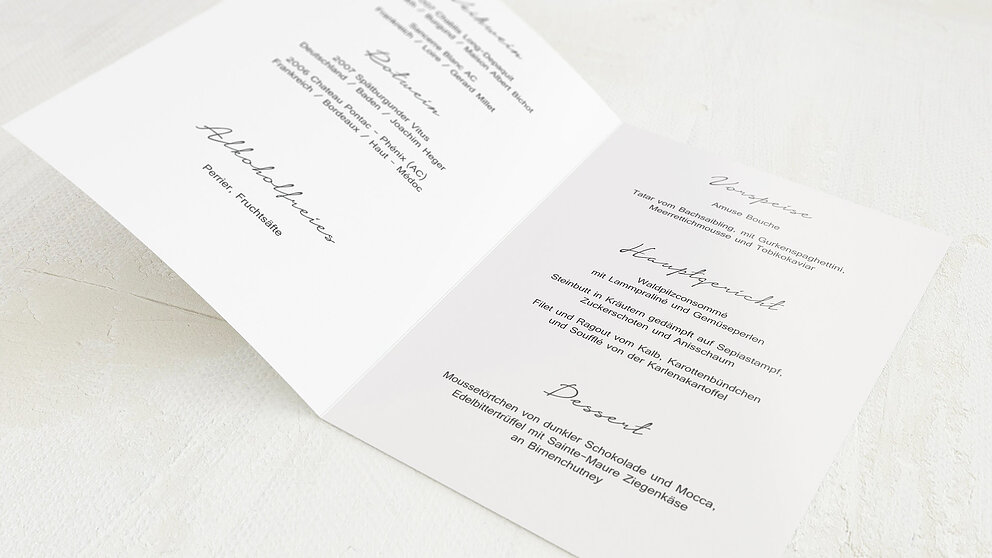 2007 Chablis Long-Depaquit
/ Burgund / Maison Albert Bichot
Sancerre Blanc AC
Frankreich / Loire / Gerard Millet
Rotwein
2007 Spätburgunder Vitus
Deutschland / Baden / Joachim Heger
2006 Chateau Pontac - Phénix (AC)
Frankreich / Bordeaux / Haut - Médoc
Alkoholfreies
Perrier, Fruchtsäfte
Vorspeise
Amuse Bouche
Tatar vom Bachsaibling, mit Gurkenspaghettini,
Meerrettichmousse und Tobikokaviar
Hauptgericht
Waldpilzconsommé
mit Lammpraliné und Gemüseperlen
Steinbutt in Kräutern gedämpft auf Sepiastampf,
Zuckerschoten und Anisschaum
Filet und Ragout vom Kalb, Karottenbündchen
und Soufflé von der Karlenakartoffel
Dessert
Moussetörtchen von dunkler Schokolade und Mocca,
Edelbittertrüffel mit Sainte-Maure Ziegenkäse
an Birnenchutney